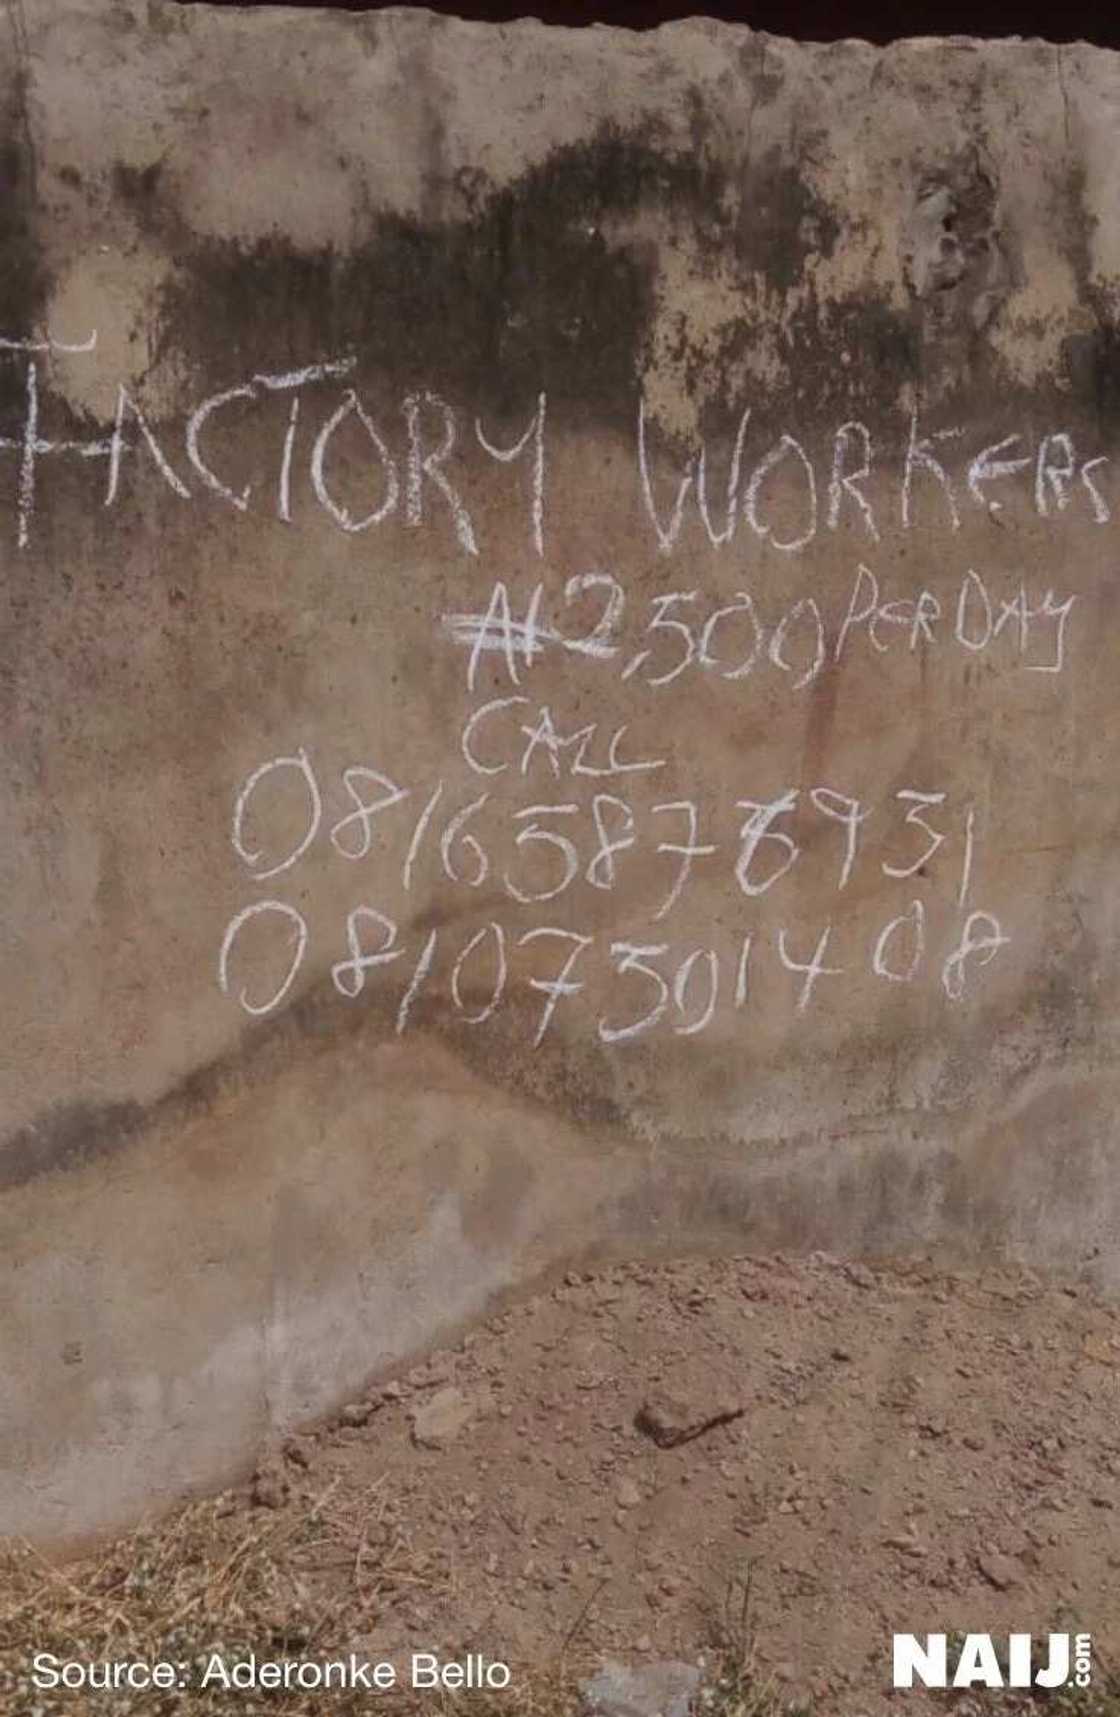 FACTORY WORKERS
₦2,500 PER DAY
CALL
08165876931
08107501408
Source: Aderonke Bello
NAIJ.com